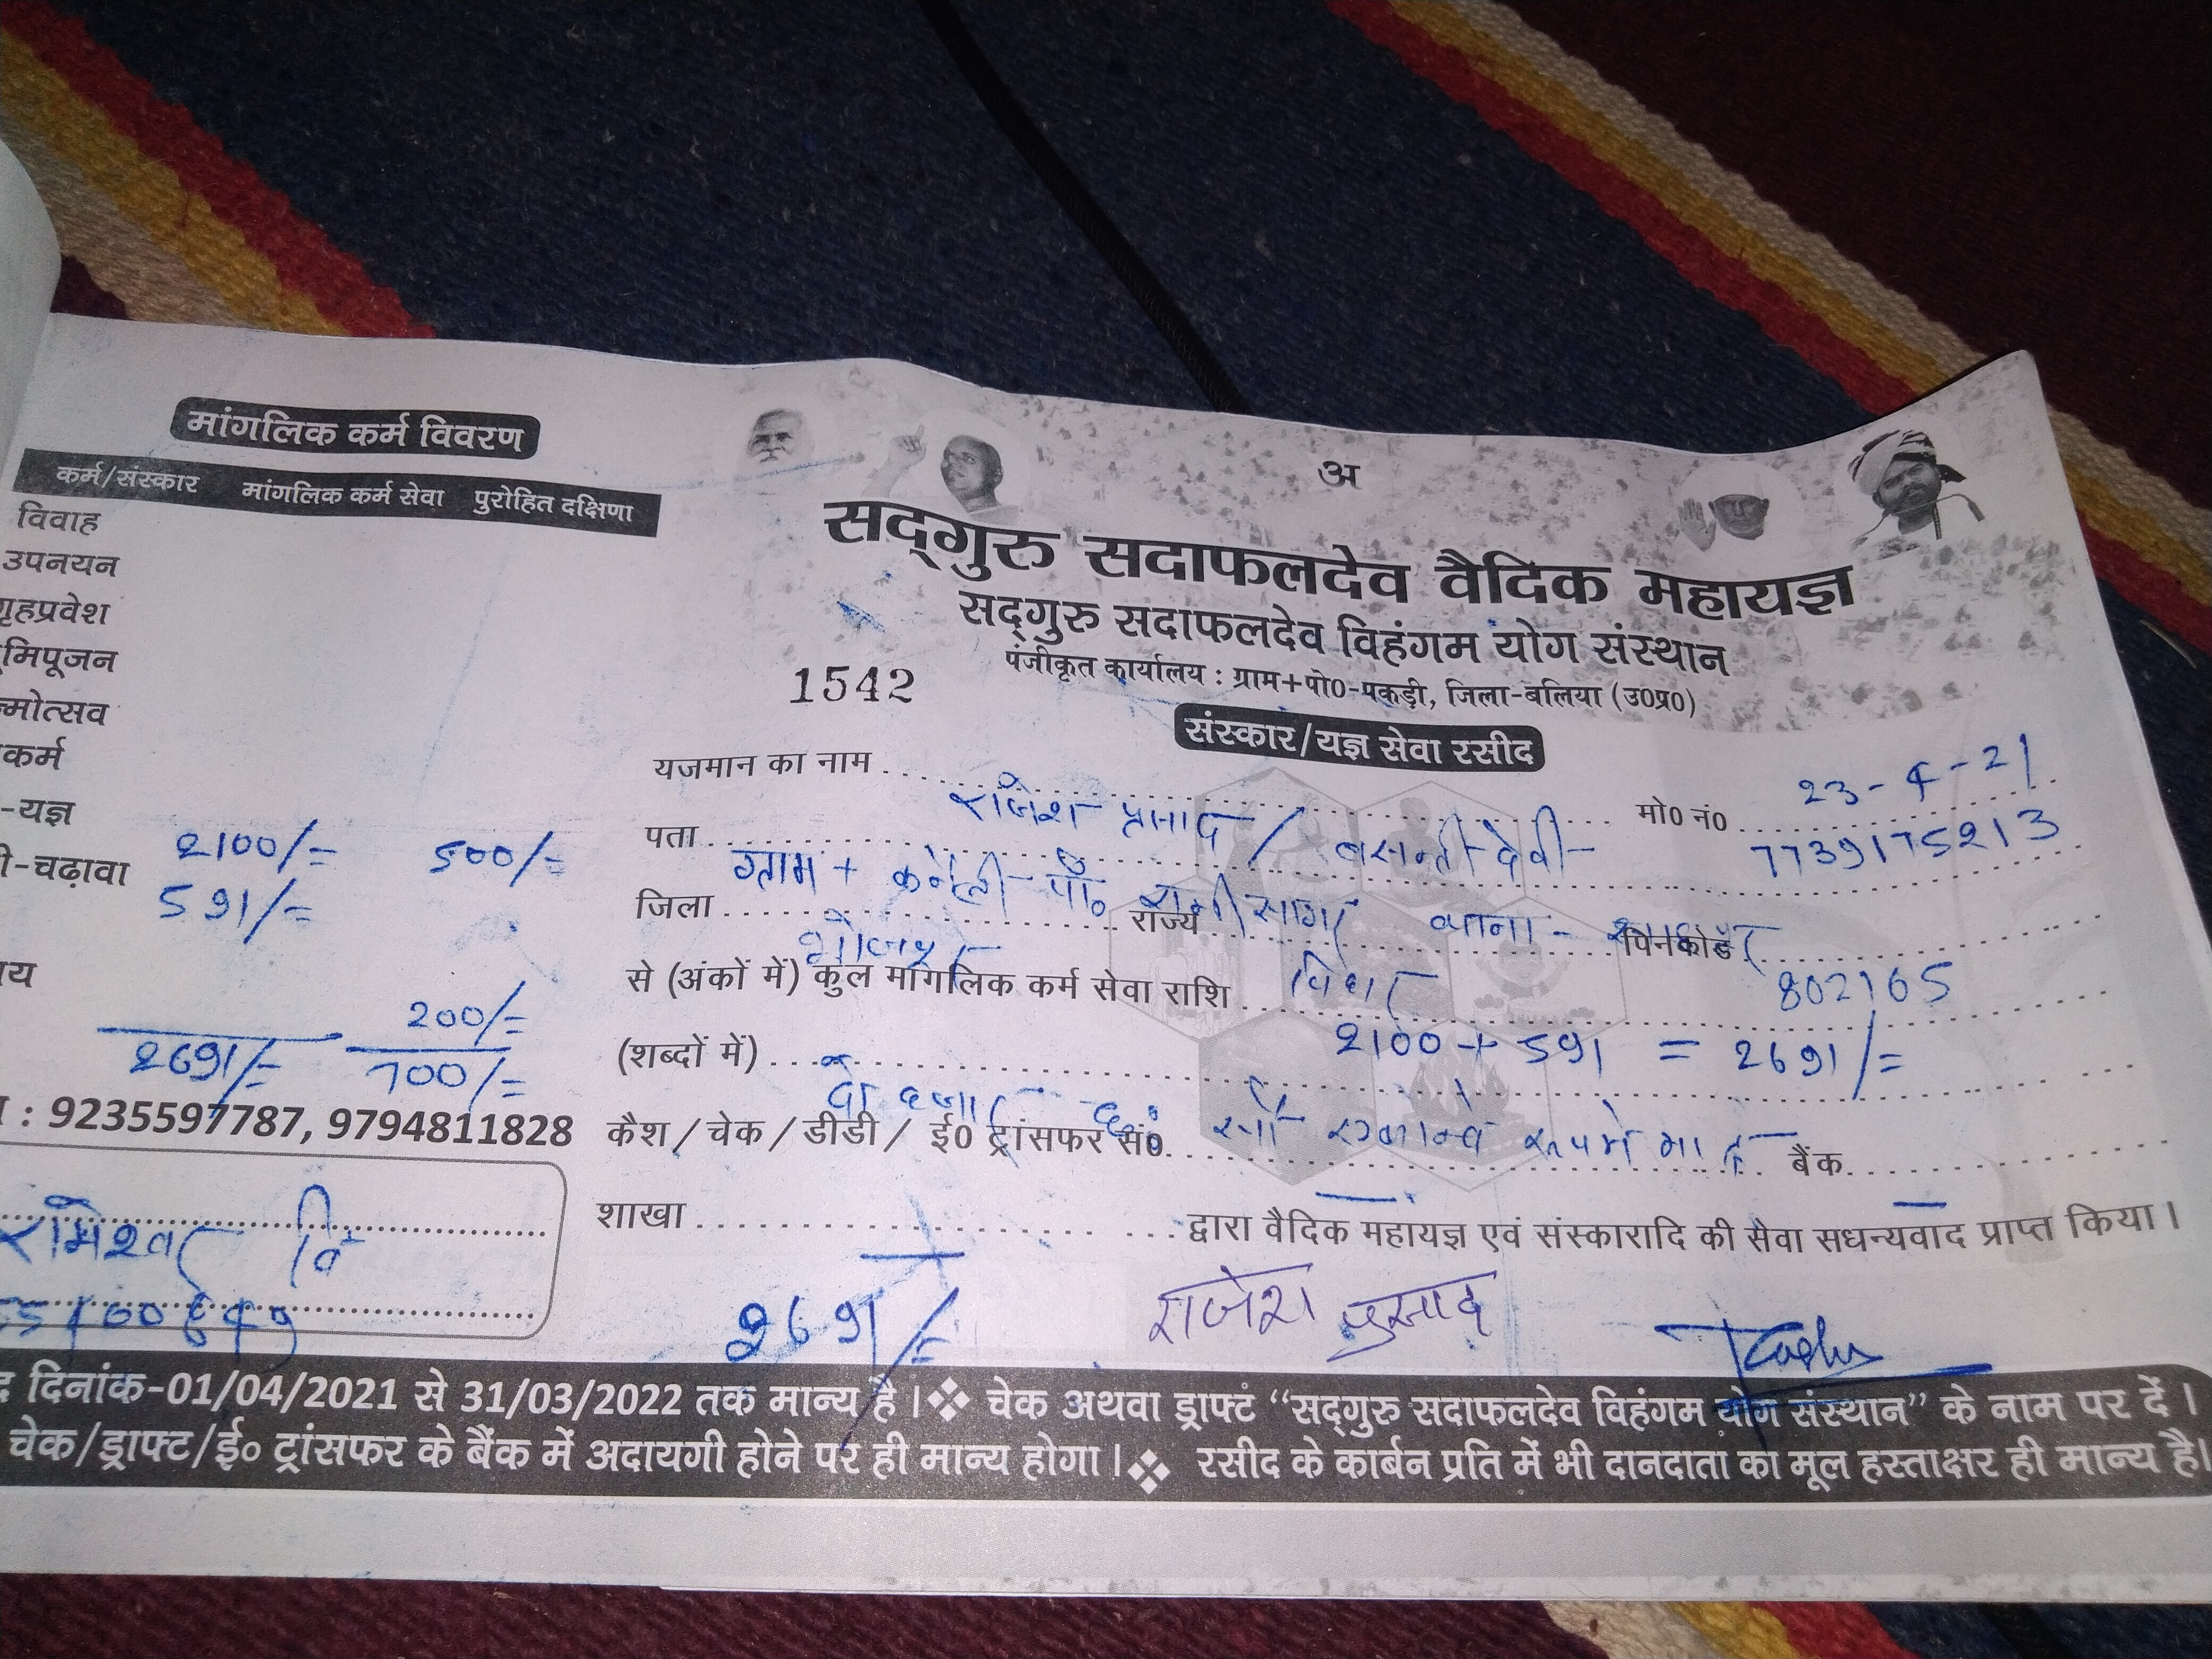 मांगलिक कर्म विवरण
कर्म/संस्कार मांगलिक कर्म सेवा पुरोहित दक्षिणा
विवाह
उपनयन
गृहप्रवेश
मिपूजन
मोत्सव
कर्म
-यज्ञ
2100/= 500/=
-चढ़ावा
591/=
200/=
2691/= 700/=
: 9235597787, 9794811828
अ
सद्गुरु सदाफलदेव वैदिक महायज्ञ
सद्गुरु सदाफलदेव विहंगम योग संस्थान
पंजीकृत कार्यालय : ग्राम+पो0-पकड़ी, जिला-बलिया (उ0प्र0)
1542
संस्कार/यज्ञ सेवा रसीद
23-4-21
यजमान का नाम राजेश प्रसाद / बसन्ती देवी मो0 नं0 7739175213
पता ग्राम + कनेली पो० रानी सागर थाना-
जिला भोजपुर राज्य बिहार पिनकोड 802165
से (अंकों में) कुल मांगलिक कर्म सेवा राशि 2100 + 591 = 2691/=
(शब्दों में) दो हजार छः सौ एकानवे रूपये मात्र
कैश/चेक/डीडी/ ई0 ट्रांसफर सं0 बैंक
शाखा द्वारा वैदिक महायज्ञ एवं संस्कारादि की सेवा सधन्यवाद प्राप्त किया।
2691/= राजेश प्रसाद
दिनांक-01/04/2021 से 31/03/2022 तक मान्य है। ❖ चेक अथवा ड्राफ्ट “सद्गुरु सदाफलदेव विहंगम योग संस्थान” के नाम पर दें।
चेक/ड्राफ्ट/ई० ट्रांसफर के बैंक में अदायगी होने पर ही मान्य होगा। ❖ रसीद के कार्बन प्रति में भी दानदाता का मूल हस्ताक्षर ही मान्य है।